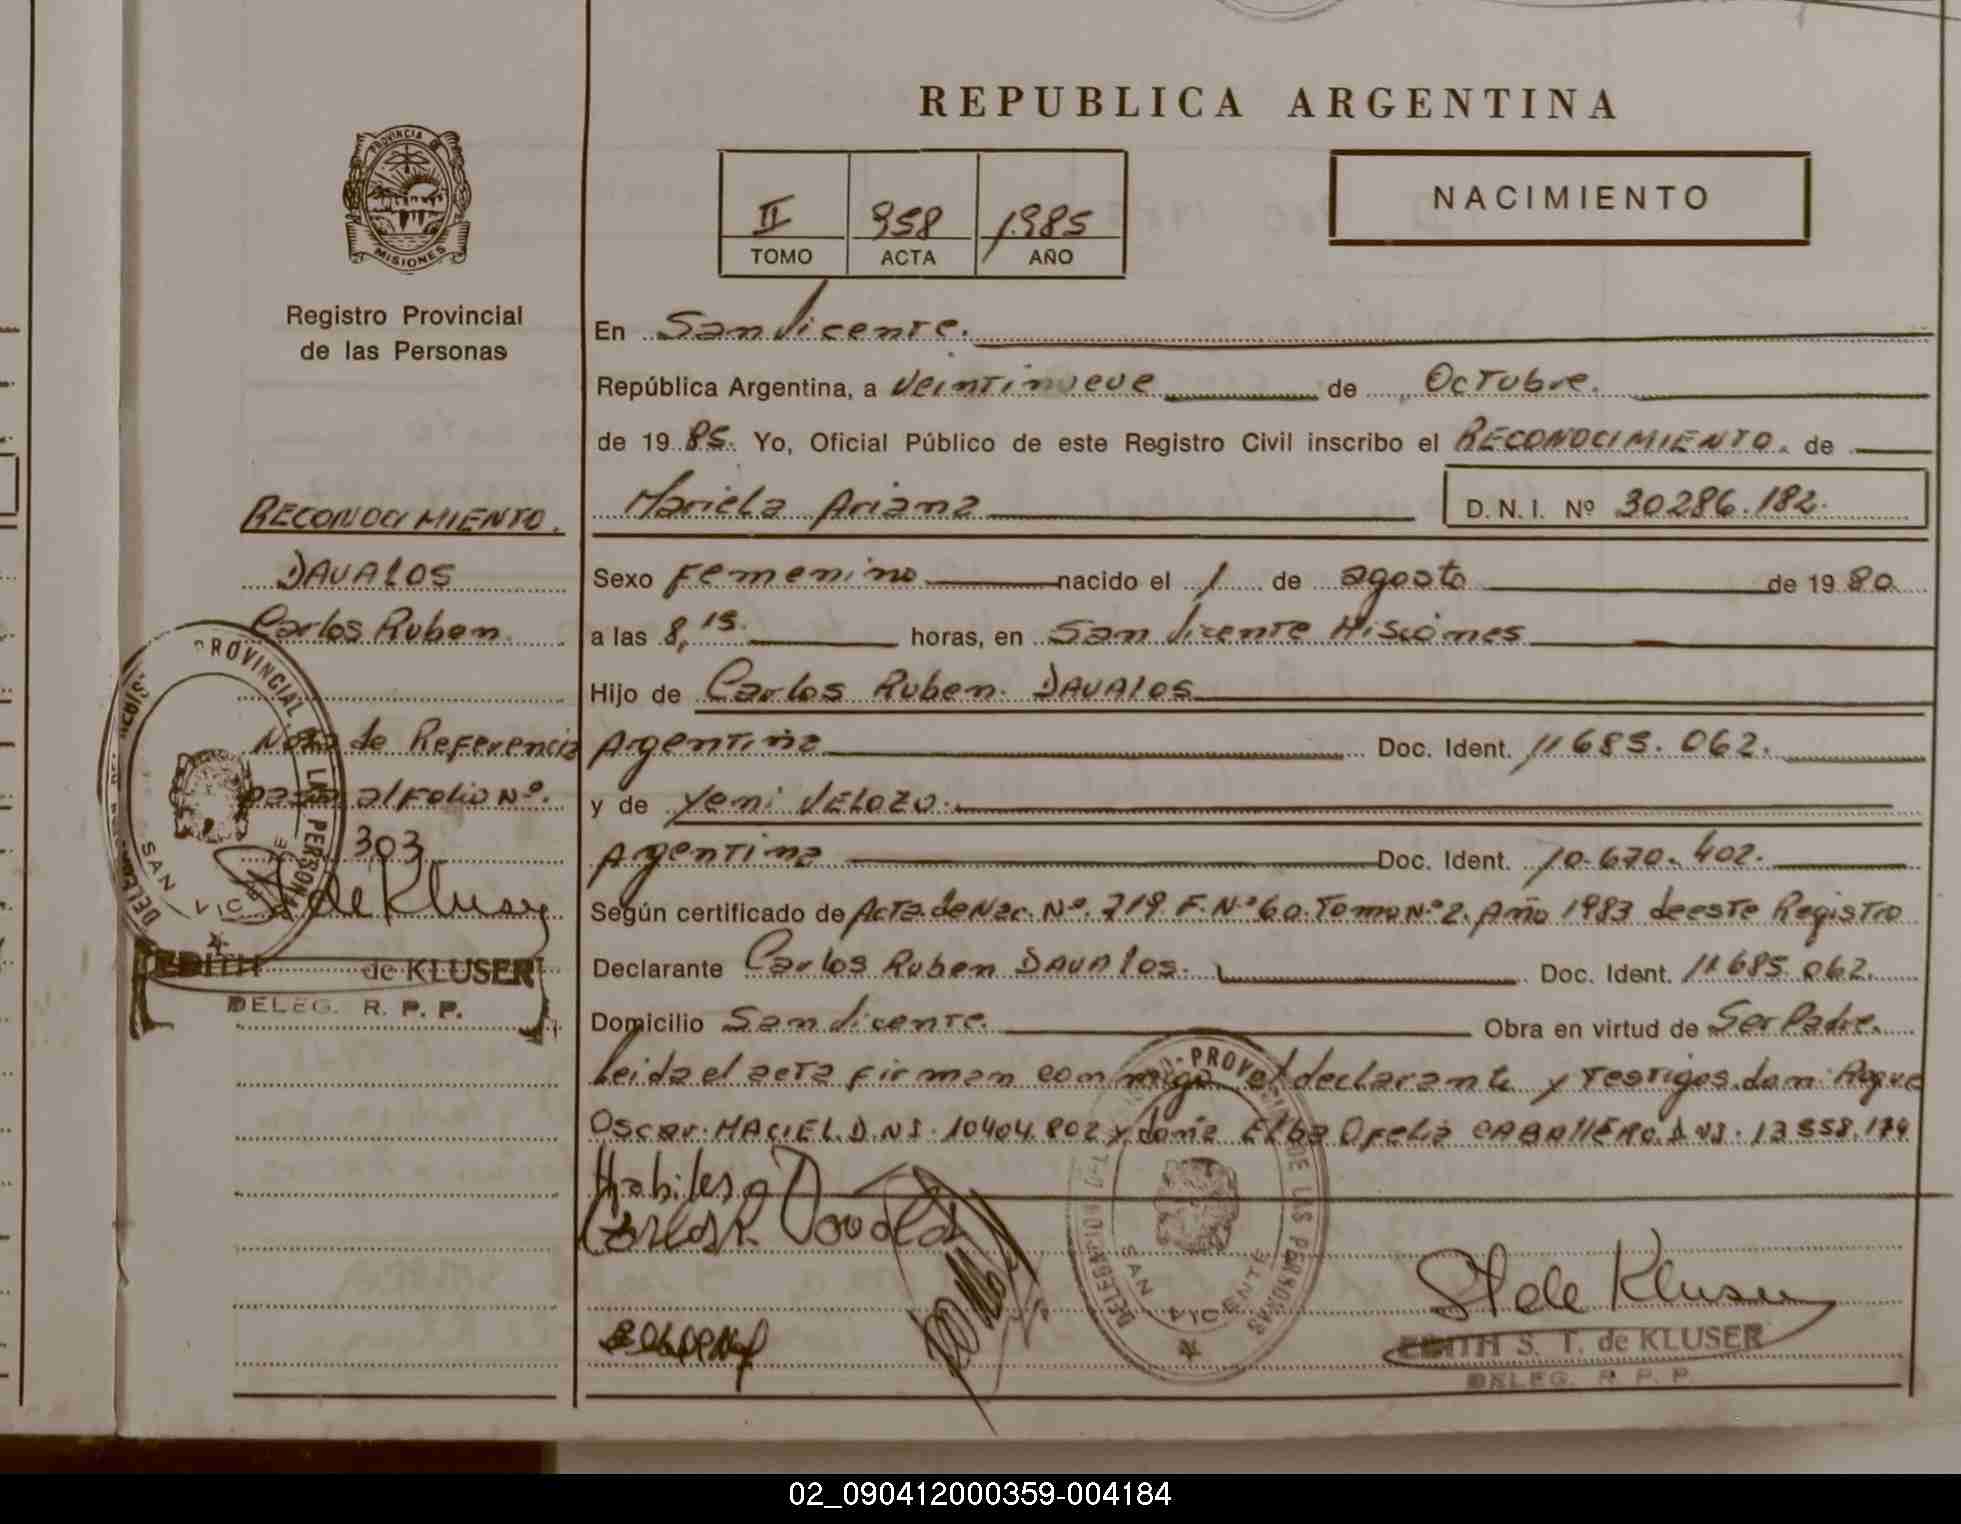 REPUBLICA ARGENTINA
PROVINCIA
MISIONES
Registro Provincial
de las Personas
II 958 1985
TOMO ACTA AÑO
NACIMIENTO
En San Vicente.
República Argentina, a veintinueve de Octubre.
de 19 85. Yo, Oficial Público de este Registro Civil inscribo el RECONOCIMIENTO. de
Mariela Ariana D. N. I. Nº 30286.182.
Sexo Femenino nacido el 1 de agosto de 19 80
a las 8,15. horas, en San Vicente Misiones
Hijo de Carlos Ruben DAVALOS
Argentina Doc. Ident. 11685.062.
y de Yeni VELOZO.
Argentina Doc. Ident. 10.670.402.
Según certificado de Acta de Nac. Nº. 719 F. Nº 60. Tomo Nº 2. Año 1983 de este Registro
Declarante Carlos Ruben DAVALOS. Doc. Ident. 11685.062.
Domicilio San Vicente. Obra en virtud de Ser Padre.
Leida el acta firman conmigo el declarante y testigos don Roque
Oscar MACIEL D.N.I. 10404.802 y doña Elba Ofelia CABALLERO D.N.I. 13558.174
Habiles
Carlos R. Davalos
St de Kluser
EDITH S. T. de KLUSER
DELEG. R. P. P.
PROVINCIAL DE LAS PERSONAS
SAN VICENTE
RECONOCIMIENTO.
DAVALOS
Carlos Ruben
Nota de Referencia
pasa al Folio Nº.
303
St de Kluser
EDITH de KLUSER
DELEG. R. P. P.
PROVINCIAL DE LAS PERSONAS
SAN VICENTE
02_090412000359-004184